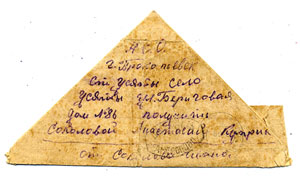 Н.С.О.
г. Прокопевск
ст. Усяты село
Усяты ул. Береговая
дом №86 получить
Соколовой
от Соколова